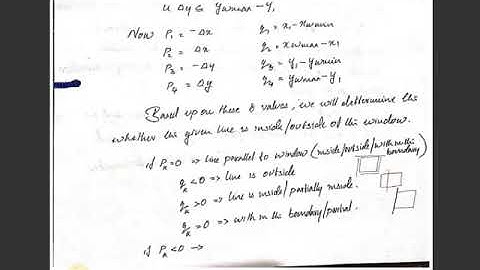 u Δy ≤ ywmax - y₁
Now P₁ = -Δx q₁ = x₁ - xwmin
P₂ = Δx q₂ = xwmax - x₁
P₃ = -Δy q₃ = y₁ - ywmin
P₄ = Δy q₄ = ywmax - y₁
Based upon these 8 values, we will determine the
whether the given line is inside/outside of the window.
if Pₖ = 0 => line parallel to window (inside/outside/within the
boundary)
qₖ < 0 => line is outside
qₖ > 0 => line is inside/partially inside.
qₖ = 0 => within the boundary/partial.
if Pₖ < 0 →